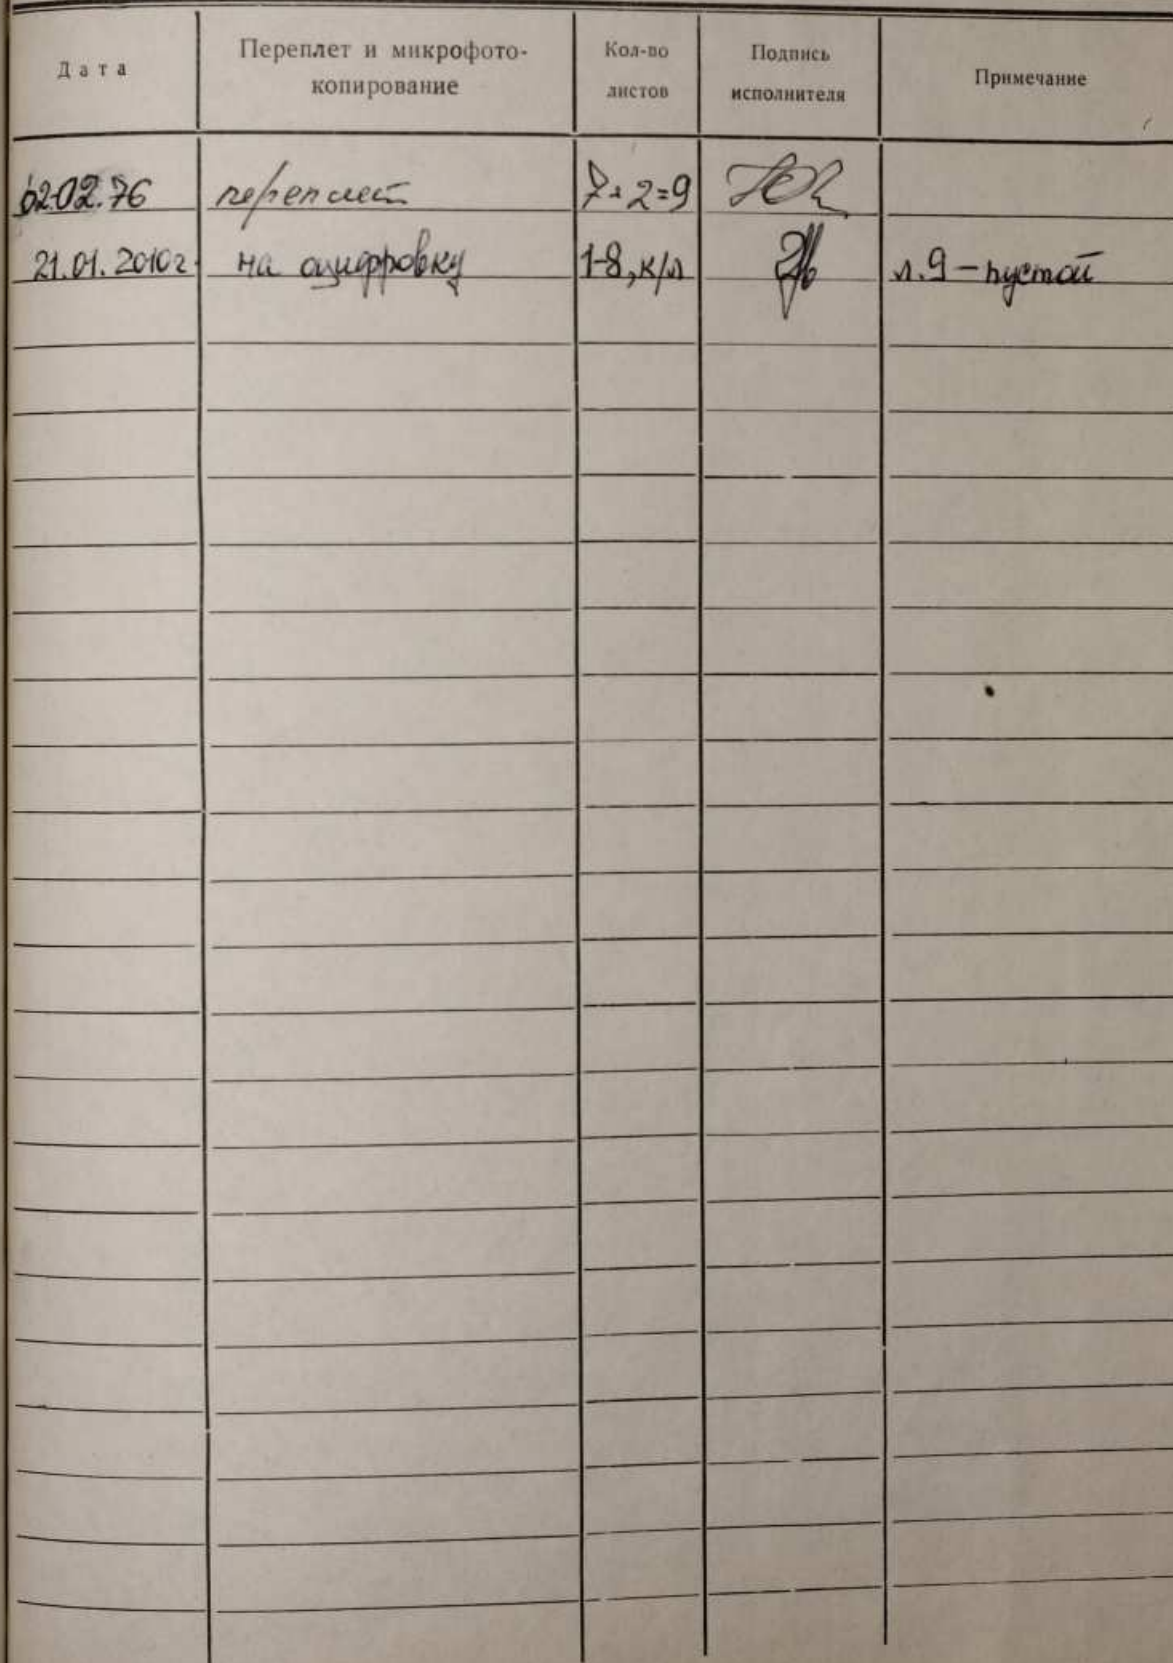 Дата
Переплет и микрофото-
копирование
Кол-во
листов
Подпись
исполнителя
Примечание
02.02.76 переплет 7+2=9
21.01.2010г. на оцифровку 1-8, к/л л.9 – пустой